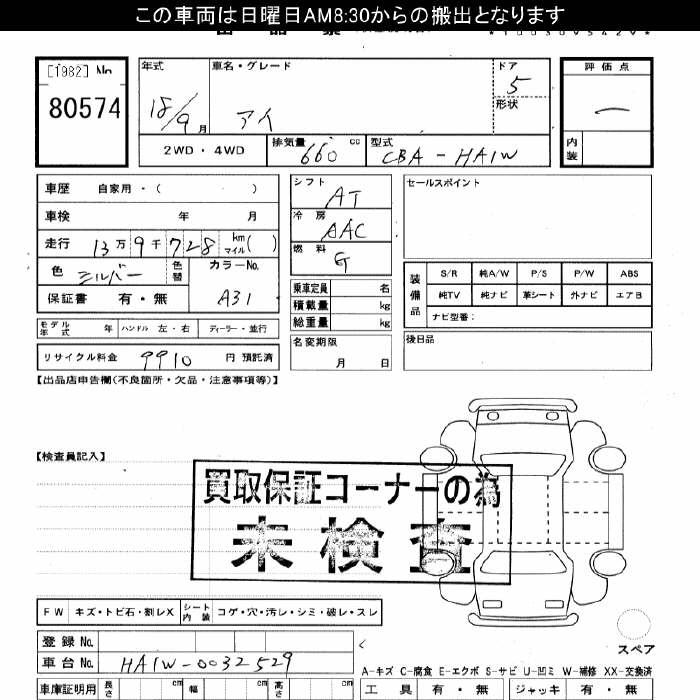 この車両は日曜日AM8:30からの搬出となります
[1982] No
80574
年式
18/9 月
車名・グレード
アイ
ドア
5
形状
評価点
―
内装
2WD・4WD
排気量 660 cc
型式 CBA-HA1W
車歴 自家用・( )
車検 年 月
走行 13万9千728 km マイル( )
色 シルバー 色替
カラーNo.
A31
保証書 有・無
モデル年式 年 ハンドル 左・右 ディーラー・並行
リサイクル料金 9910 円 預託済
シフト AT
冷房 AAC
燃料 G
乗車定員 名
積載量 kg
総重量 kg
名変期限
月 日
セールスポイント
装備品
S/R 純A/W P/S P/W ABS
純TV 純ナビ 革シート 外ナビ エアB
ナビ型番:
後日品
【出品店申告欄(不良箇所・欠品・注意事項等)】
【検査員記入】
買取保証コーナーの為
未検査
FW キズ・トビ石・割レX シート内装 コゲ・穴・汚レ・シミ・破レ・スレ
登録No.
車台No. HA1W-0032529
スペア
A-キズ C-腐食 E-エクボ S-サビ U-凹ミ W-補修 XX-交換済
車庫証明用 長さ cm 幅 cm 高さ cm
工具 有・無 ジャッキ 有・無